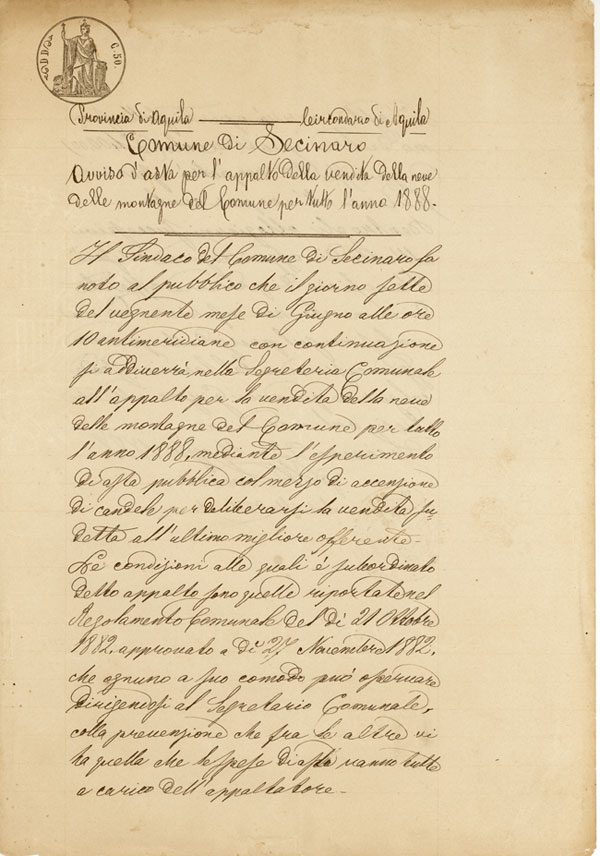 C. 50.
Provincia di Aquila Circondario di Aquila
Comune di Secinaro
Avviso d'asta per l'appalto della vendita della neve
delle montagne del Comune per tutto l'anno 1888.
Il Sindaco del Comune di Secinaro fa
noto al pubblico che il giorno sette
del vegnente mese di Giugno alle ore
10 antimeridiane con continuazione
si addiverrà nella Segreteria Comunale
all'appalto per la vendita della neve
delle montagne del Comune per tutto
l'anno 1888, mediante l'esperimento
di asta pubblica col mezzo di accenzione
di candele per deliberarsi la vendita su-
detta all'ultimo migliore offerente.
Le condizioni alle quali è subordinato
detto appalto sono quelle riportate nel
Regolamento Comunale del dì 21 Ottobre
1882, approvato a dì 27 Novembre 1882,
che ognuno a suo comodo può osservare
dirigendosi al Segretario Comunale,
colla prevenzione che fra le altre vi
ha quella che le spese di asta vanno tutte
a carico dell'appaltatore.